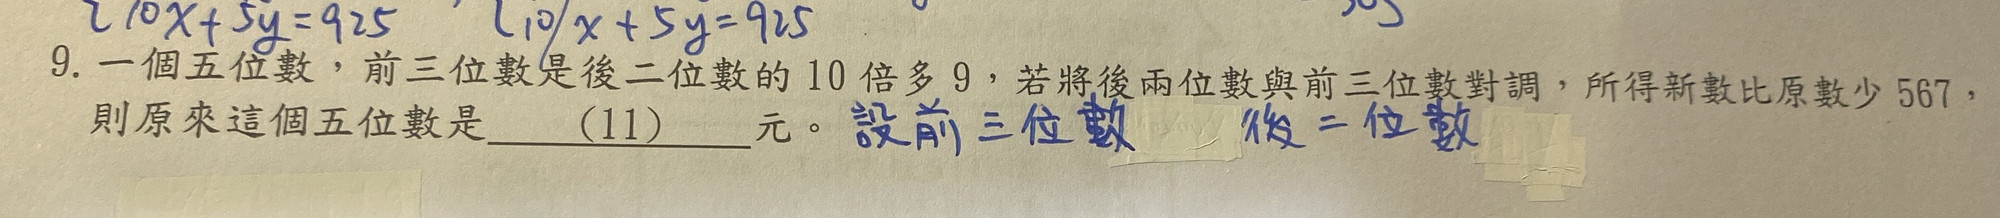 {10x+5y=925 {10x+5y=925
9. 一個五位數，前三位數是後二位數的 10 倍多 9，若將後兩位數與前三位數對調，所得新數比原數少 567，
則原來這個五位數是 (11) 元。設前三位數 後二位數